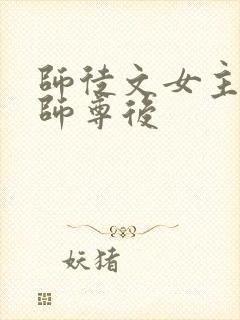 師徒文女主
師尊後
妖猪